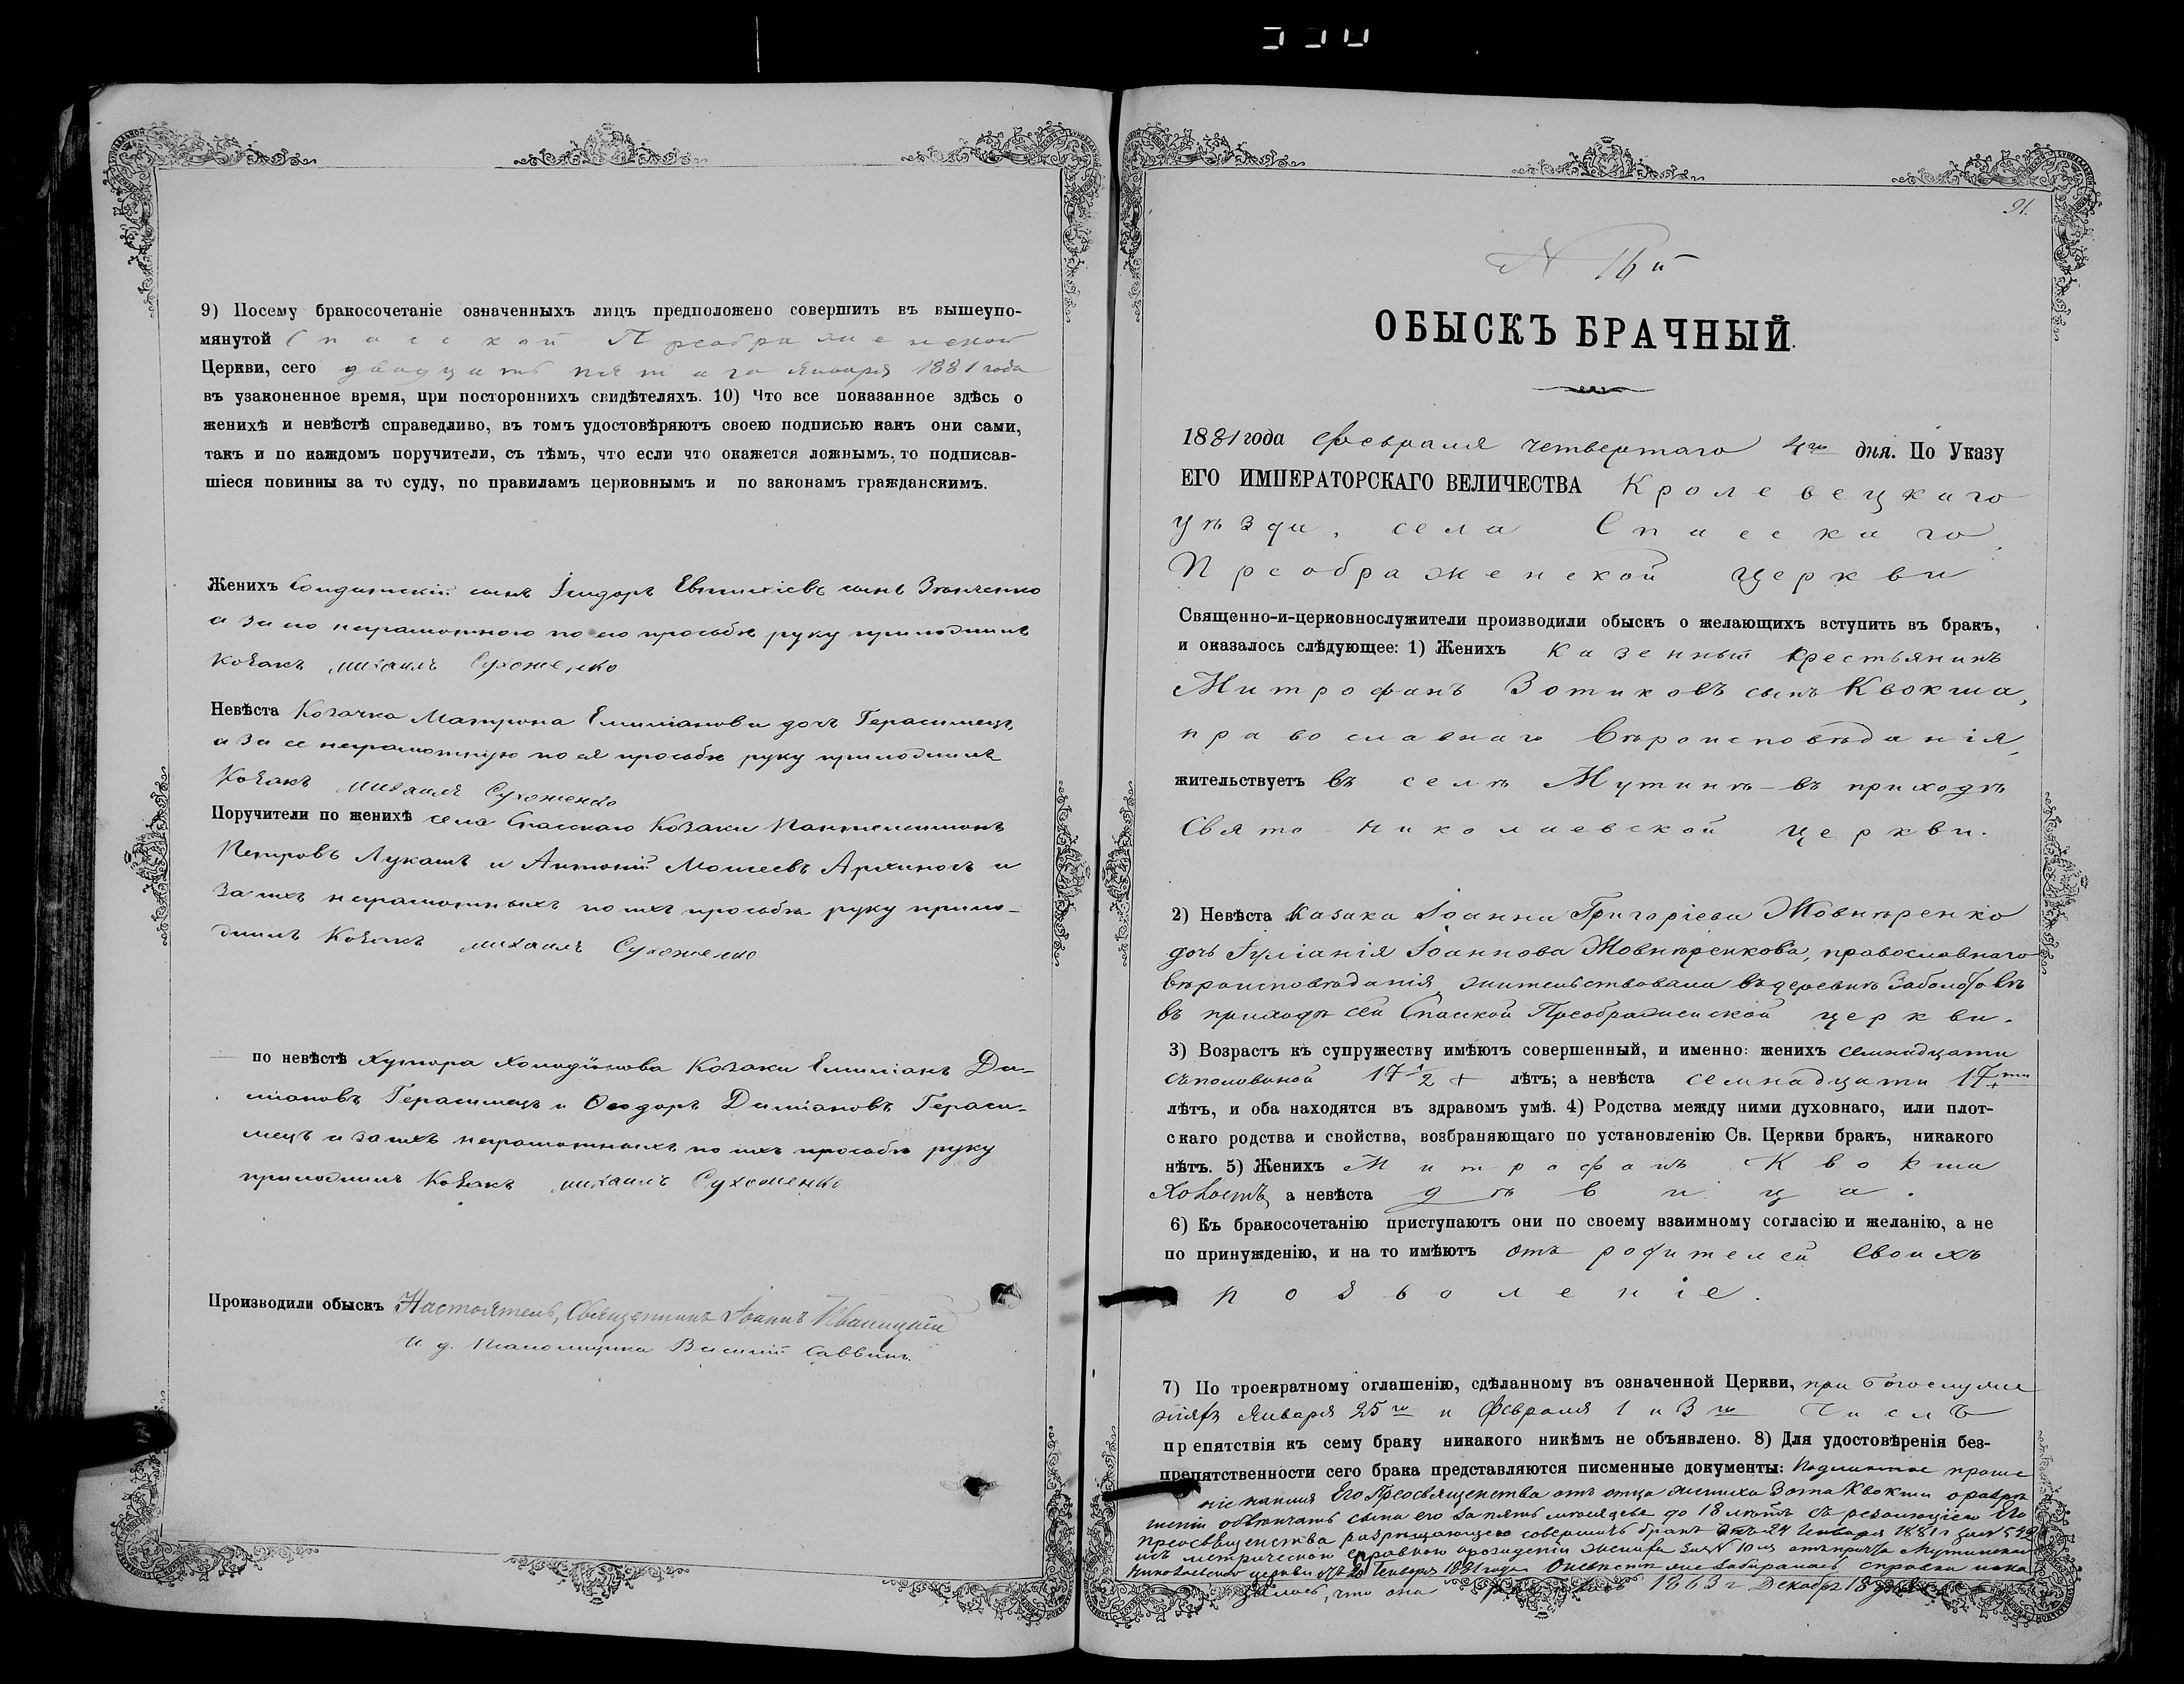 9) Посему бракосочетаніе означенныхъ лицъ предположено совершить въ вышеупо-
мянутой Спасской Преображенской
Церкви, сего двадцать пятаго Января 1881 года
въ узаконенное время, при постороннихъ свидѣтеляхъ. 10) Что все показанное здѣсь о
женихѣ и невѣстѣ справедливо, въ томъ удостовѣряютъ своею подписью какъ они сами,
такъ и по каждомъ поручители, съ тѣмъ, что если что окажется ложнымъ, то подписав-
шіеся повинны за то суду, по правиламъ церковнымъ и по законамъ гражданскимъ.
Женихъ Солдатскій сынъ Ісидоръ Евтихіевъ сынъ
а за его неграмотного по его прозьбѣ руку приложилъ
козакъ михаилъ Сухоженко
Невѣста Козачка Матрона Емиліанова дочь Герасимецъ,
а за ее неграмотную по ея прозьбѣ руку приложилъ
Козакъ михаилъ Сухоженко
Поручители по женихѣ села Спасскаго Козаки Пантелеимонъ
Петровъ Лукашъ и Антоній Моисеевъ и
за ихъ неграмотныхъ по ихъ прозьбѣ руку прило-
жилъ Козакъ михаилъ Сухоженко
по невѣстѣ хутора Козаки Емиліанъ Да-
міановъ Герасимецъ и Ѳеодоръ Даміановъ Гераси-
мецъ а за ихъ неграмотныхъ по ихъ прозьбѣ руку
приложилъ Козакъ михаилъ Сухоженко
Производили обыскъ Настоятель, Священникъ Іоаннъ
И. д. Псаломщика Василій Саввинъ.
91.
№ 16й
ОБЫСКЪ БРАЧНЫЙ.
1881 года Февраля четвертаго 4го дня. По Указу
ЕГО ИМПЕРАТОРСКАГО ВЕЛИЧЕСТВА Кролевецкаго
уѣзда, села Спасскаго
Преображенской Церкви
Священно-и-церковнослужители производили обыскъ о желающихъ вступить въ бракъ,
и оказалось слѣдующее: 1) Женихъ Казенный крестьянинъ
Митрофанъ Зотиковъ сынъ Квокша,
православнаго Вѣроисповѣданія,
жительствуетъ въ селѣ Мутинѣ – въ приходѣ
Свято Николаевской церкви.
2) Невѣста Казака Іоанна Григоріева Жовнѣренко
дочь Іуліанія Іоаннова Жовнѣренкова, православнаго
вѣроисповѣданія, жительствовала въ деревнѣ
въ приходѣ сей Спасской Преображенской церкви.
3) Возрастъ къ супружеству имѣютъ совершенный, и именно: женихъ семнадцати
съ половиной 17 1/2 + лѣтъ; а невѣста семнадцати 17ти
лѣтъ, и оба находятся въ здравомъ умѣ. 4) Родства между ними духовнаго, или плот-
скаго родства и свойства, возбраняющаго по установленію Св. Церкви бракъ, никакого
нѣтъ. 5) Женихъ Митрофанъ Квокша
Холостъ, а невѣста дѣвица.
6) Къ бракосочетанію приступаютъ они по своему взаимному согласію и желанію, а не
по принужденію, и на то имѣютъ отъ родителей своихъ
позволеніе.
7) По троекратному оглашенію, сдѣланному въ означенной Церкви, при богослуже
ніяхъ Января 25го и Февраля 1 и 3го Числъ
препятствія къ сему браку никакого никѣмъ не объявлено. 8) Для удостовѣренія без-
препятственности сего брака представляются писменные документы: Подлинное проше
ніе на имя Его Преосвященства отъ отца жениха Зота Квокши о разрѣ
шеніи обвѣнчать сына его за пять мѣсяцевъ до 18 лѣтъ съ резолюціею Его
преосвященства разрѣщающею совершить бракъ отъ 24 Генваря 1881 г
метрической справкою о рожденіи жениха за № 10 отъ причта Мутинской
Николаевской церкви отъ Генваря 1881 года О невѣстѣ же забиралась справка пока
залось, что она родилась 1863 г Декабря 18 дня